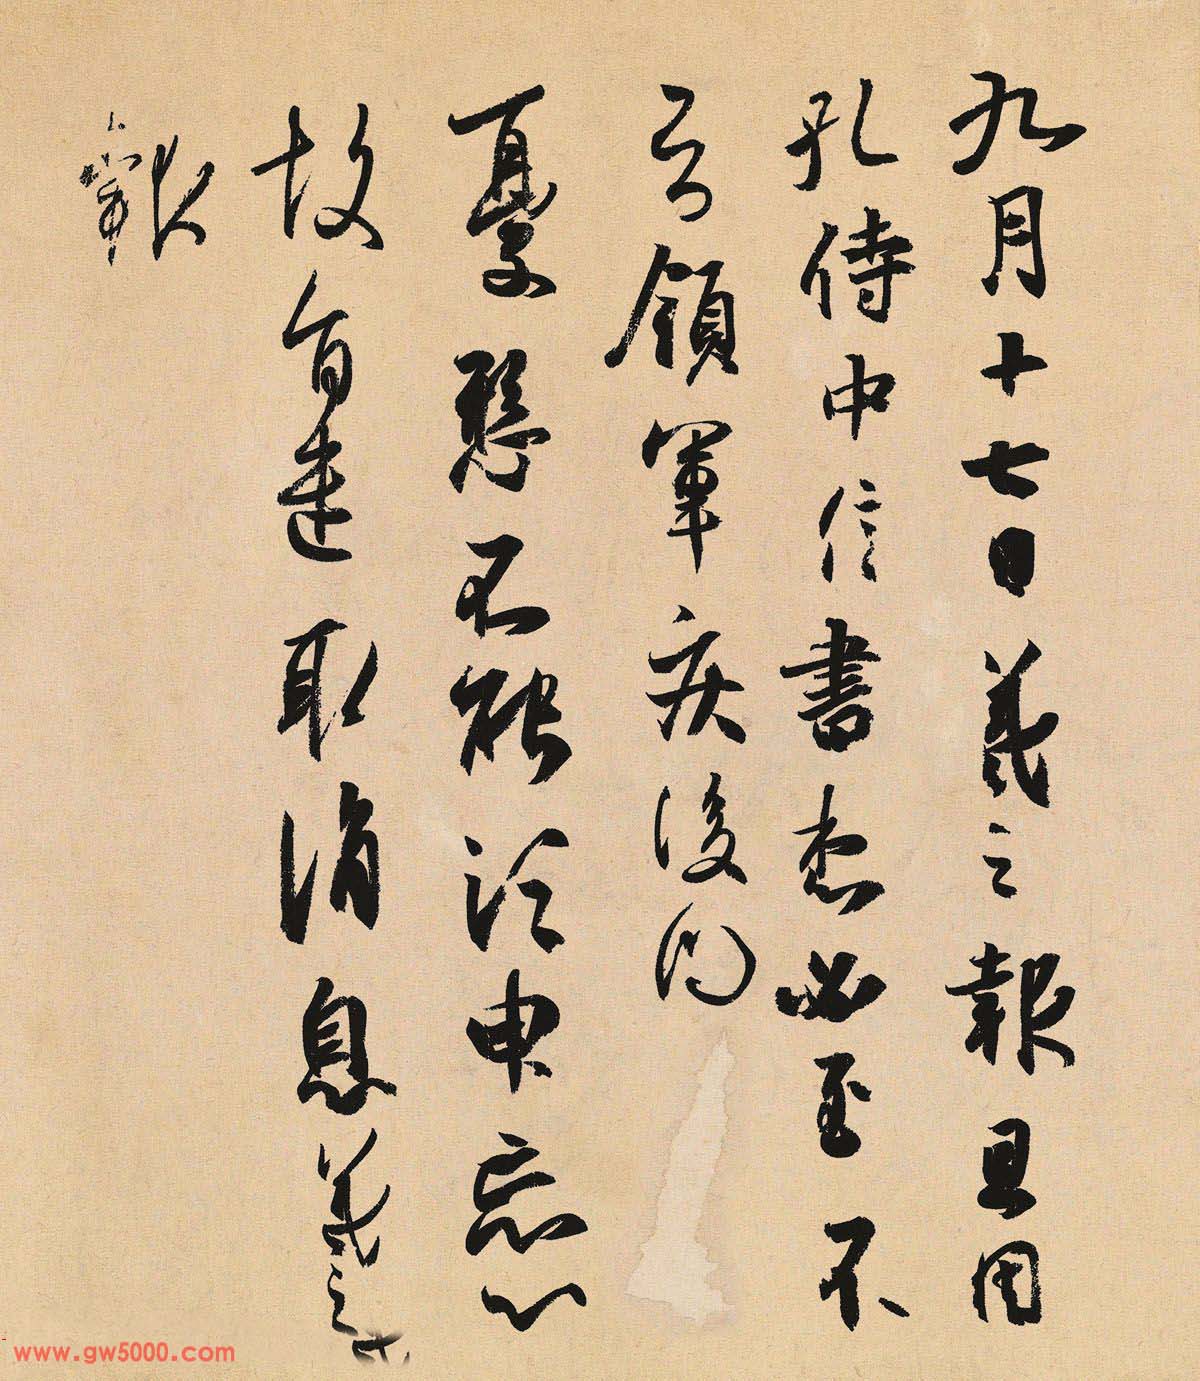 九月十七日羲之報且因
孔侍中信書想必至不
知領軍疾後問
憂懸不能須臾忘心
故旨遣取消息羲之
報
www.gw5000.com